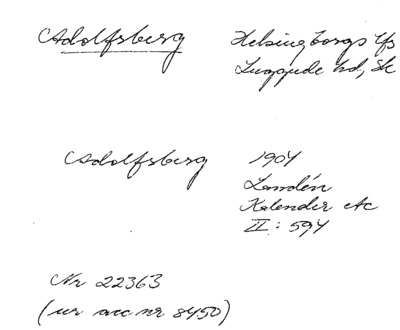 Adolfsberg Helsingborgs lfs
Luggude hd, Sk
Adolfsberg 1904
Landén
Kalender etc
II: 594
Nr 22363
(ur acc nr 8450)